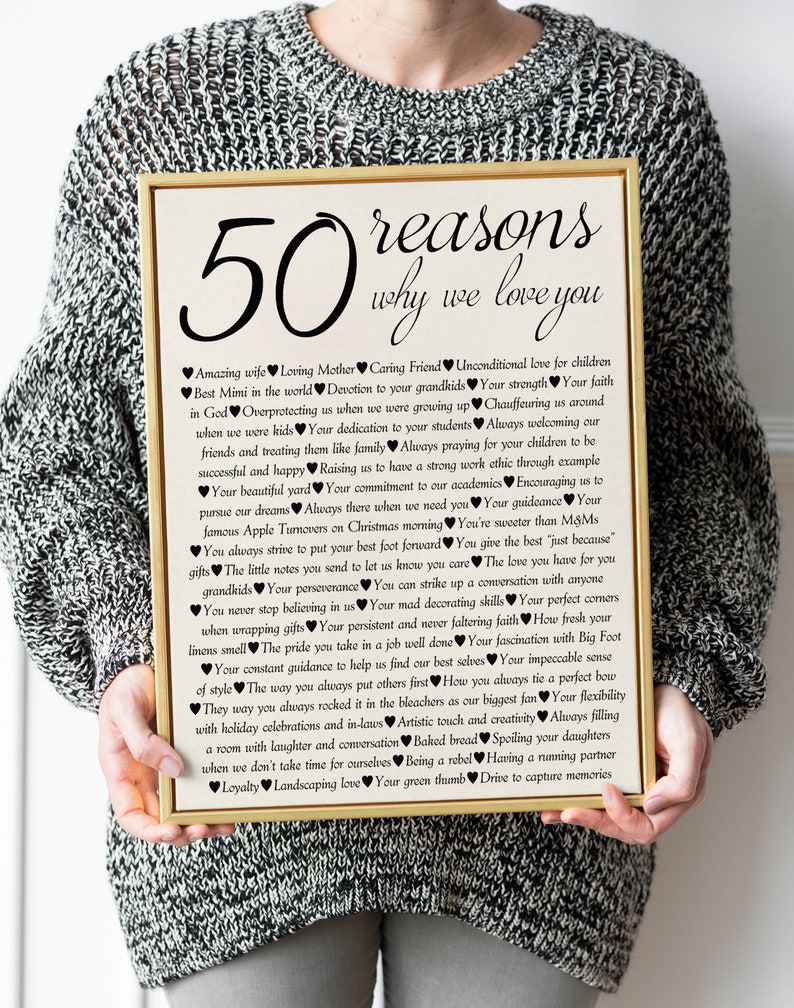 50 reasons
why we love you
♥Amazing wife♥Loving Mother♥Caring Friend♥Unconditional love for children
♥Best Mimi in the world♥Devotion to your grandkids♥Your strength♥Your faith
in God♥Overprotecting us when we were growing up♥Chauffeuring us around
when we were kids♥Your dedication to your students♥Always welcoming our
friends and treating them like family♥Always praying for your children to be
successful and happy♥Raising us to have a strong work ethic through example
♥Your beautiful yard♥Your commitment to our academics♥Encouraging us to
pursue our dreams♥Always there when we need you♥Your guideance♥Your
famous Apple Turnovers on Christmas morning♥You're sweeter than M&Ms
♥You always strive to put your best foot forward♥You give the best "just because"
gifts♥The little notes you send to let us know you care♥The love you have for you
grandkids♥Your perseverance♥You can strike up a conversation with anyone
♥You never stop believing in us♥Your mad decorating skills♥Your perfect corners
when wrapping gifts♥Your persistent and never faltering faith♥How fresh your
linens smell♥The pride you take in a job well done♥Your fascination with Big Foot
♥Your constant guidance to help us find our best selves♥Your impeccable sense
of style♥The way you always put others first♥How you always tie a perfect bow
♥They way you always rocked it in the bleachers as our biggest fan♥Your flexibility
with holiday celebrations and in-laws♥Artistic touch and creativity♥Always filling
a room with laughter and conversation♥Baked bread♥Spoiling your daughters
when we don't take time for ourselves♥Being a rebel♥Having a running partner
♥Loyalty♥Landscaping love♥Your green thumb♥Drive to capture memories